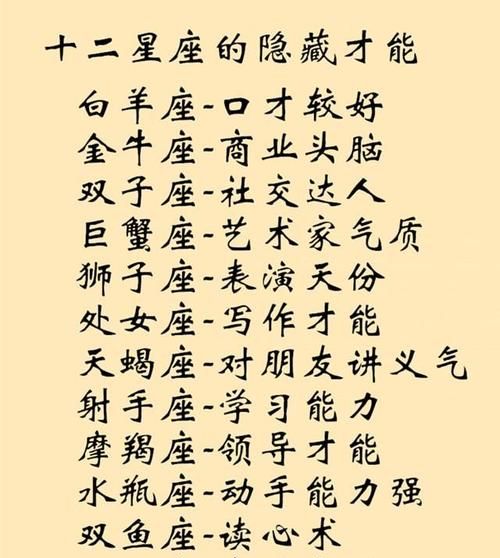 十二星座的隐藏才能
白羊座-口才较好
金牛座-商业头脑
双子座-社交达人
巨蟹座-艺术家气质
狮子座-表演天份
处女座-写作才能
天蝎座-对朋友讲义气
射手座-学习能力
摩羯座-领导才能
水瓶座-动手能力强
双鱼座-读心术